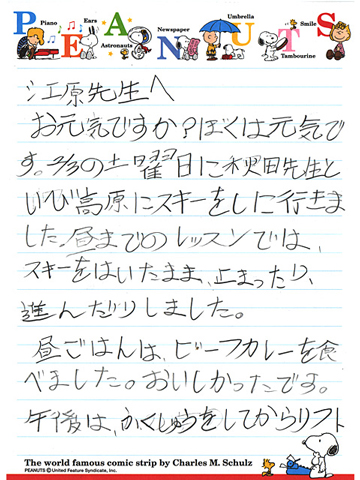 Piano
Ears
Astronauts
Newspaper
Umbrella
Tambourine
Smile
PEANUTS
江原先生へ
お元気ですか？ぼくは元気で
す。2/3の土曜日に秋田先生と
いいび高原にスキーをしに行きま
した。昼までのレッスンでは、
スキーをはいたまま、止まったり、
進んだりしました。
昼ごはんは、ビーフカレーを食
べました。おいしかったです。
午後は、ふくしゅうをしてからリフト
The world famous comic strip by Charles M. Schulz
PEANUTS © United Feature Syndicate, Inc.